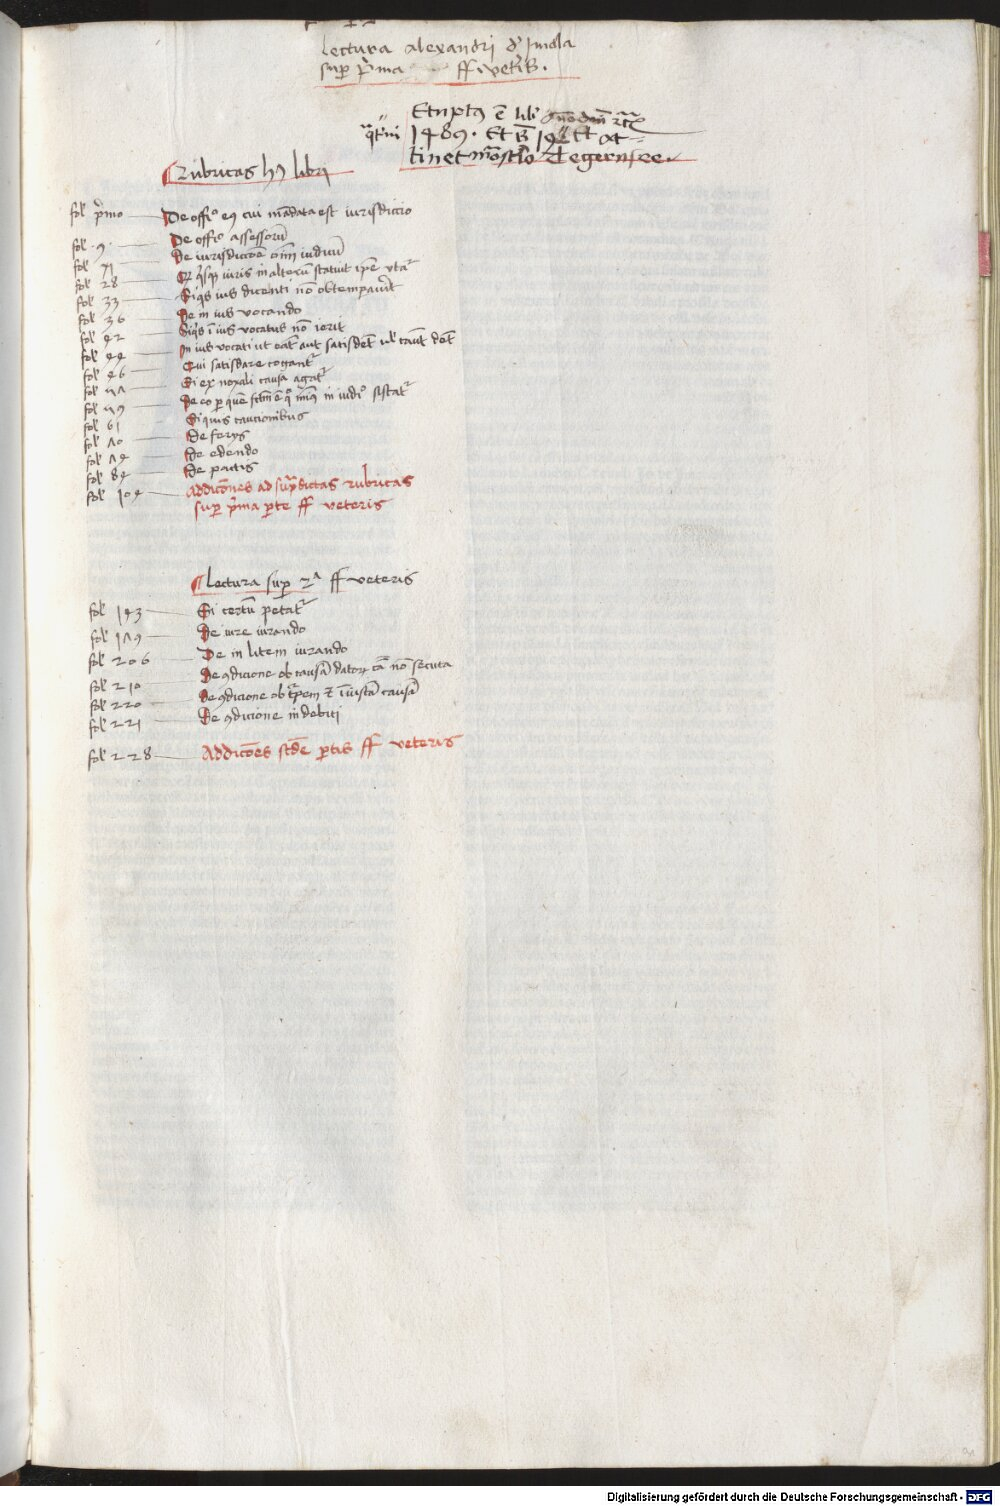 Lectura alexandri d' Imola
sup p̄ma ff. veteris.
Emptus ē lib
1489. Et
tinet mōstio Tegernsee.
Rubricas hꝰ libri
fol p̄mo De offio eꝰ cui mādata est iurisdictio
fol. 9. De offio assessorū
fol 11 De iurisdictōe om̄i iudicū
fol 28 Qd qisq iuris in alterū statuit ipē vtatr
fol 33 Si qs ius dicenti nō obtempauit
fol 36 De in ius vocando
fol 42 Siqs ī ius vocatus nō ierit
fol 44 In ius vocati ut eāt aut satisdēt ul caut dēt
fol 46 Qui satisdare cogantr
fol 47 Si ex noxali causa agatr
fol 49 De eo p quē fctm ē q mius in iudio sistatr
fol 61 Si quis caucionibus
fol 70 De ferijs
fol 74 De edendo
fol 84 De pactis
fol 104 Addicōnes ad supdictas rubricas
sup p̄ma pte ff veteris
Lectura sup 2a ff veteris
fol 143 Si certū petatr
fol 179 De iure iurando
fol 206 De in litem iurando
fol 210 De ꝯdicione ob causā datorꝝ cā nō secuta
fol 220 De ꝯdicione ob tpem ꝛ iniustā causā
fol 221 De ꝯdicione indebiti
fol 228 Addicōes scde ptis ff veteris
Digitalisierung gefördert durch die Deutsche Forschungsgemeinschaft - DFG